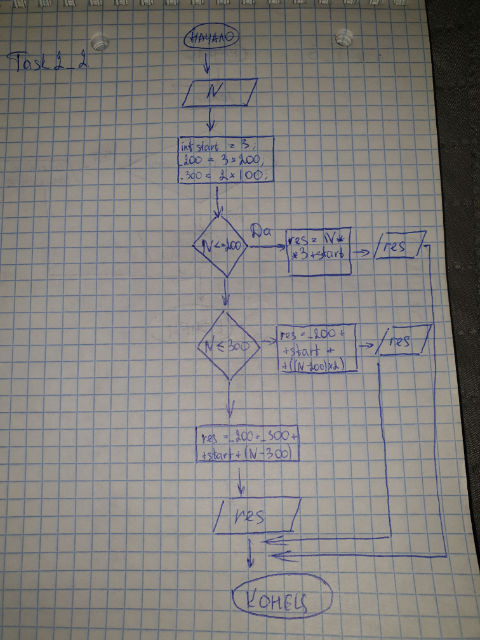 НАЧАЛО
Task 2_2
N
int start = 3,
_200 = 3*200,
_300 = 2*100;
N<=200
Да
res = N*
*3+start
res
N≤300
res = _200+
+start +
+((N-200)*2)
res
res = _200+_300+
+start+(N-300)
res
КОНЕЦ